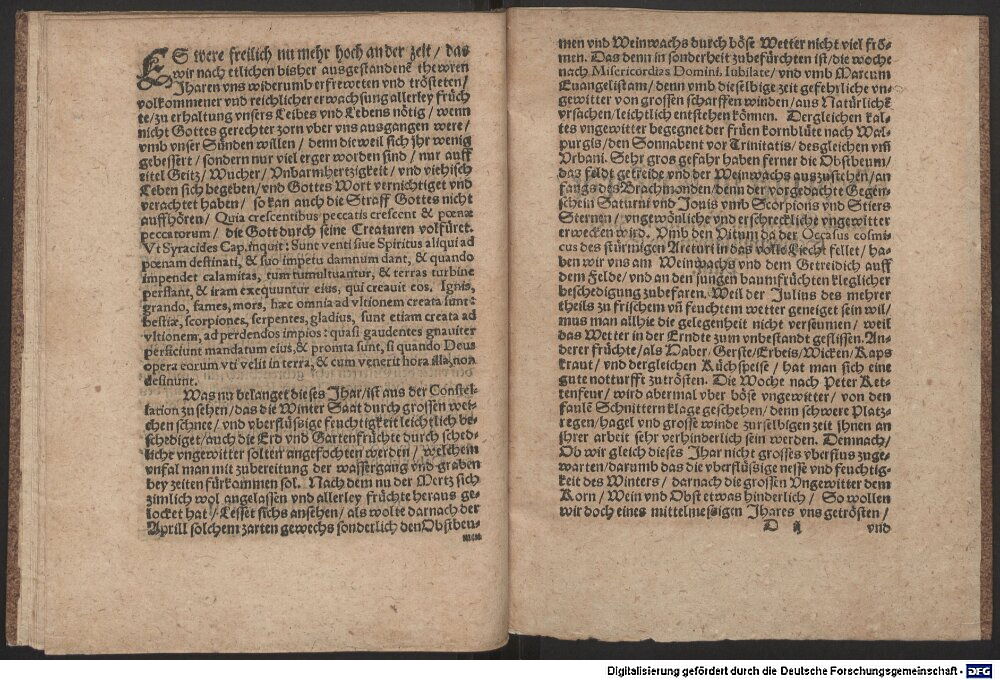 ES were freilich nu mehr hoch an der zeit / das
wir nach etlichen bisher ausgestandenē thewren
Jharen vns widerumb erfreweten vnd trösteten /
volkommener vnd reichlicher erwachsung allerley früch
te / zu erhaltung vnsers Leibes vnd Lebens nötig / wenn
nicht Gottes gerechter zorn vber vns ausgangen were /
vmb vnser Sünden willen / denn die weil sich jhr wenig
gebessert / sondern nur viel erger worden sind / nur auff
eitel Geitz / Wucher / Vnbarmhertzigkeit / vnd viehisch
Leben sich begeben / vnd Gottes Wort vernichtiget vnd
verachtet haben / so kan auch die Straff Gottes nicht
auffhören / Quia crescentibus peccatis crescent & pœnæ
peccatorum / die Gott durch seine Creaturen volfüret.
Vt Syracides Cap. inquit: Sunt venti siue Spiritus aliqui ad
pœnam destinati, & suo impetu damnum dant, & quando
impendet calamitas, tum tumultuantur, & terras turbine
perflant, & iram exequuntur eius, qui creauit eos. Ignis,
grando, fames, mors, hæc omnia ad vltionem creata sunt:
bestiæ, scorpiones, serpentes, gladius, sunt etiam creata ad
vltionem, ad perdendos impios: quasi gaudentes gnauiter
perficiunt mandatum eius, & promta sunt, si quando Deus
opera eorum vti velit in terra, & cum venerit hora illa, non
desinunt.
Was nu belanget dieses Jhar / ist aus der Constel-
lation zusehen / das die Winter Saat durch grossen wei-
chen schnee / vnd vberflüßige feuchtigkeit leichtlich be-
schediget / auch die Erd vnd Gartenfrüchte durch sched-
liche vngewitter solten angefochten werden / welchem
vnfal man mit zubereitung der wassergang vnd graben
bey zeiten fürkommen sol. Nach dem nu der Mertz sich
zimlich wol angelassen vnd allerley früchte heraus ge-
locket hat / Lesset sichs ansehen / als wolte darnach der
Aprill solchem zarten gewechs sonderlich den Obstbeu-
men
men vnd Weinwachs durch böse Wetter nicht viel frö-
men. Das denn in sonderheit zubefürchten ist / die woche
nach Misericordias Domini. Iubilate / vnd vmb Marcum
Euangelistam / denn vmb dieselbige zeit gefehrliche vn-
gewitter von grossen scharffen winden / aus Natürlichē
vrsachen / leichtlich entstehen können. Dergleichen kal-
tes vngewitter begegnet der früen kornblüt nach Wal-
purgis / den Sonnabent vor Trinitatis / desgleichen vm̄
Vrbani. Sehr gros gefahr haben ferner die Obstbeum /
das feldt getreide vnd der Weinwachs auszustehen / an
fangs des Brachmonden / denn der vorgedachte Gegen-
schein Saturni vnd Jouis vmb Scorpions vnd Stiers
Sternen / vngewönliche vnd erschreckliche vngewitter
erwecken wird. Vmb den Vitum da der Occasus cosmi-
cus des stürmigen Arcturi in das volle Liecht fellet / ha-
ben wir vns am Weinwachs vnd dem Getreidich auff
dem Felde / vnd an den jungen baumfrüchten kleglicher
beschedigung zubefaren. Weil der Julius des mehrer
theils zu frischem vn̄ feuchtem wetter geneiget sein wil /
mus man allhie die gelegenheit nicht verseumen / weil
das Wetter in der Erndte zum vnbestandt geflissen. An-
derer früchte / als Haber / Gerste / Erbeis / Wicken / Kaps
kraut / vnd dergleichen Küchspeise / hat man sich eine
gute notturfft zu trösten. Die Woche nach Peter Ket-
tenfeur / wird abermal vber böse vngewitter / von den
faulē Schnittern klage geschehen / denn schwere Platz-
regen / hagel vnd grosse winde zurselbigen zeit jhnen an
jhrer arbeit sehr verhinderlich sein werden. Demnach /
Ob wir gleich dieses Jhar nicht grosses vberflus zuge-
warten / darumb das die vberflüßige nesse vnd feuchtig-
keit des Winters / darnach die grossen Vngewitter dem
Korn / Wein vnd Obst etwas hinderlich / So wollen
wir doch eines mittelmeßigen Jhares vns getrösten /
D
vnd
Digitalisierung gefördert durch die Deutsche Forschungsgemeinschaft - DFG